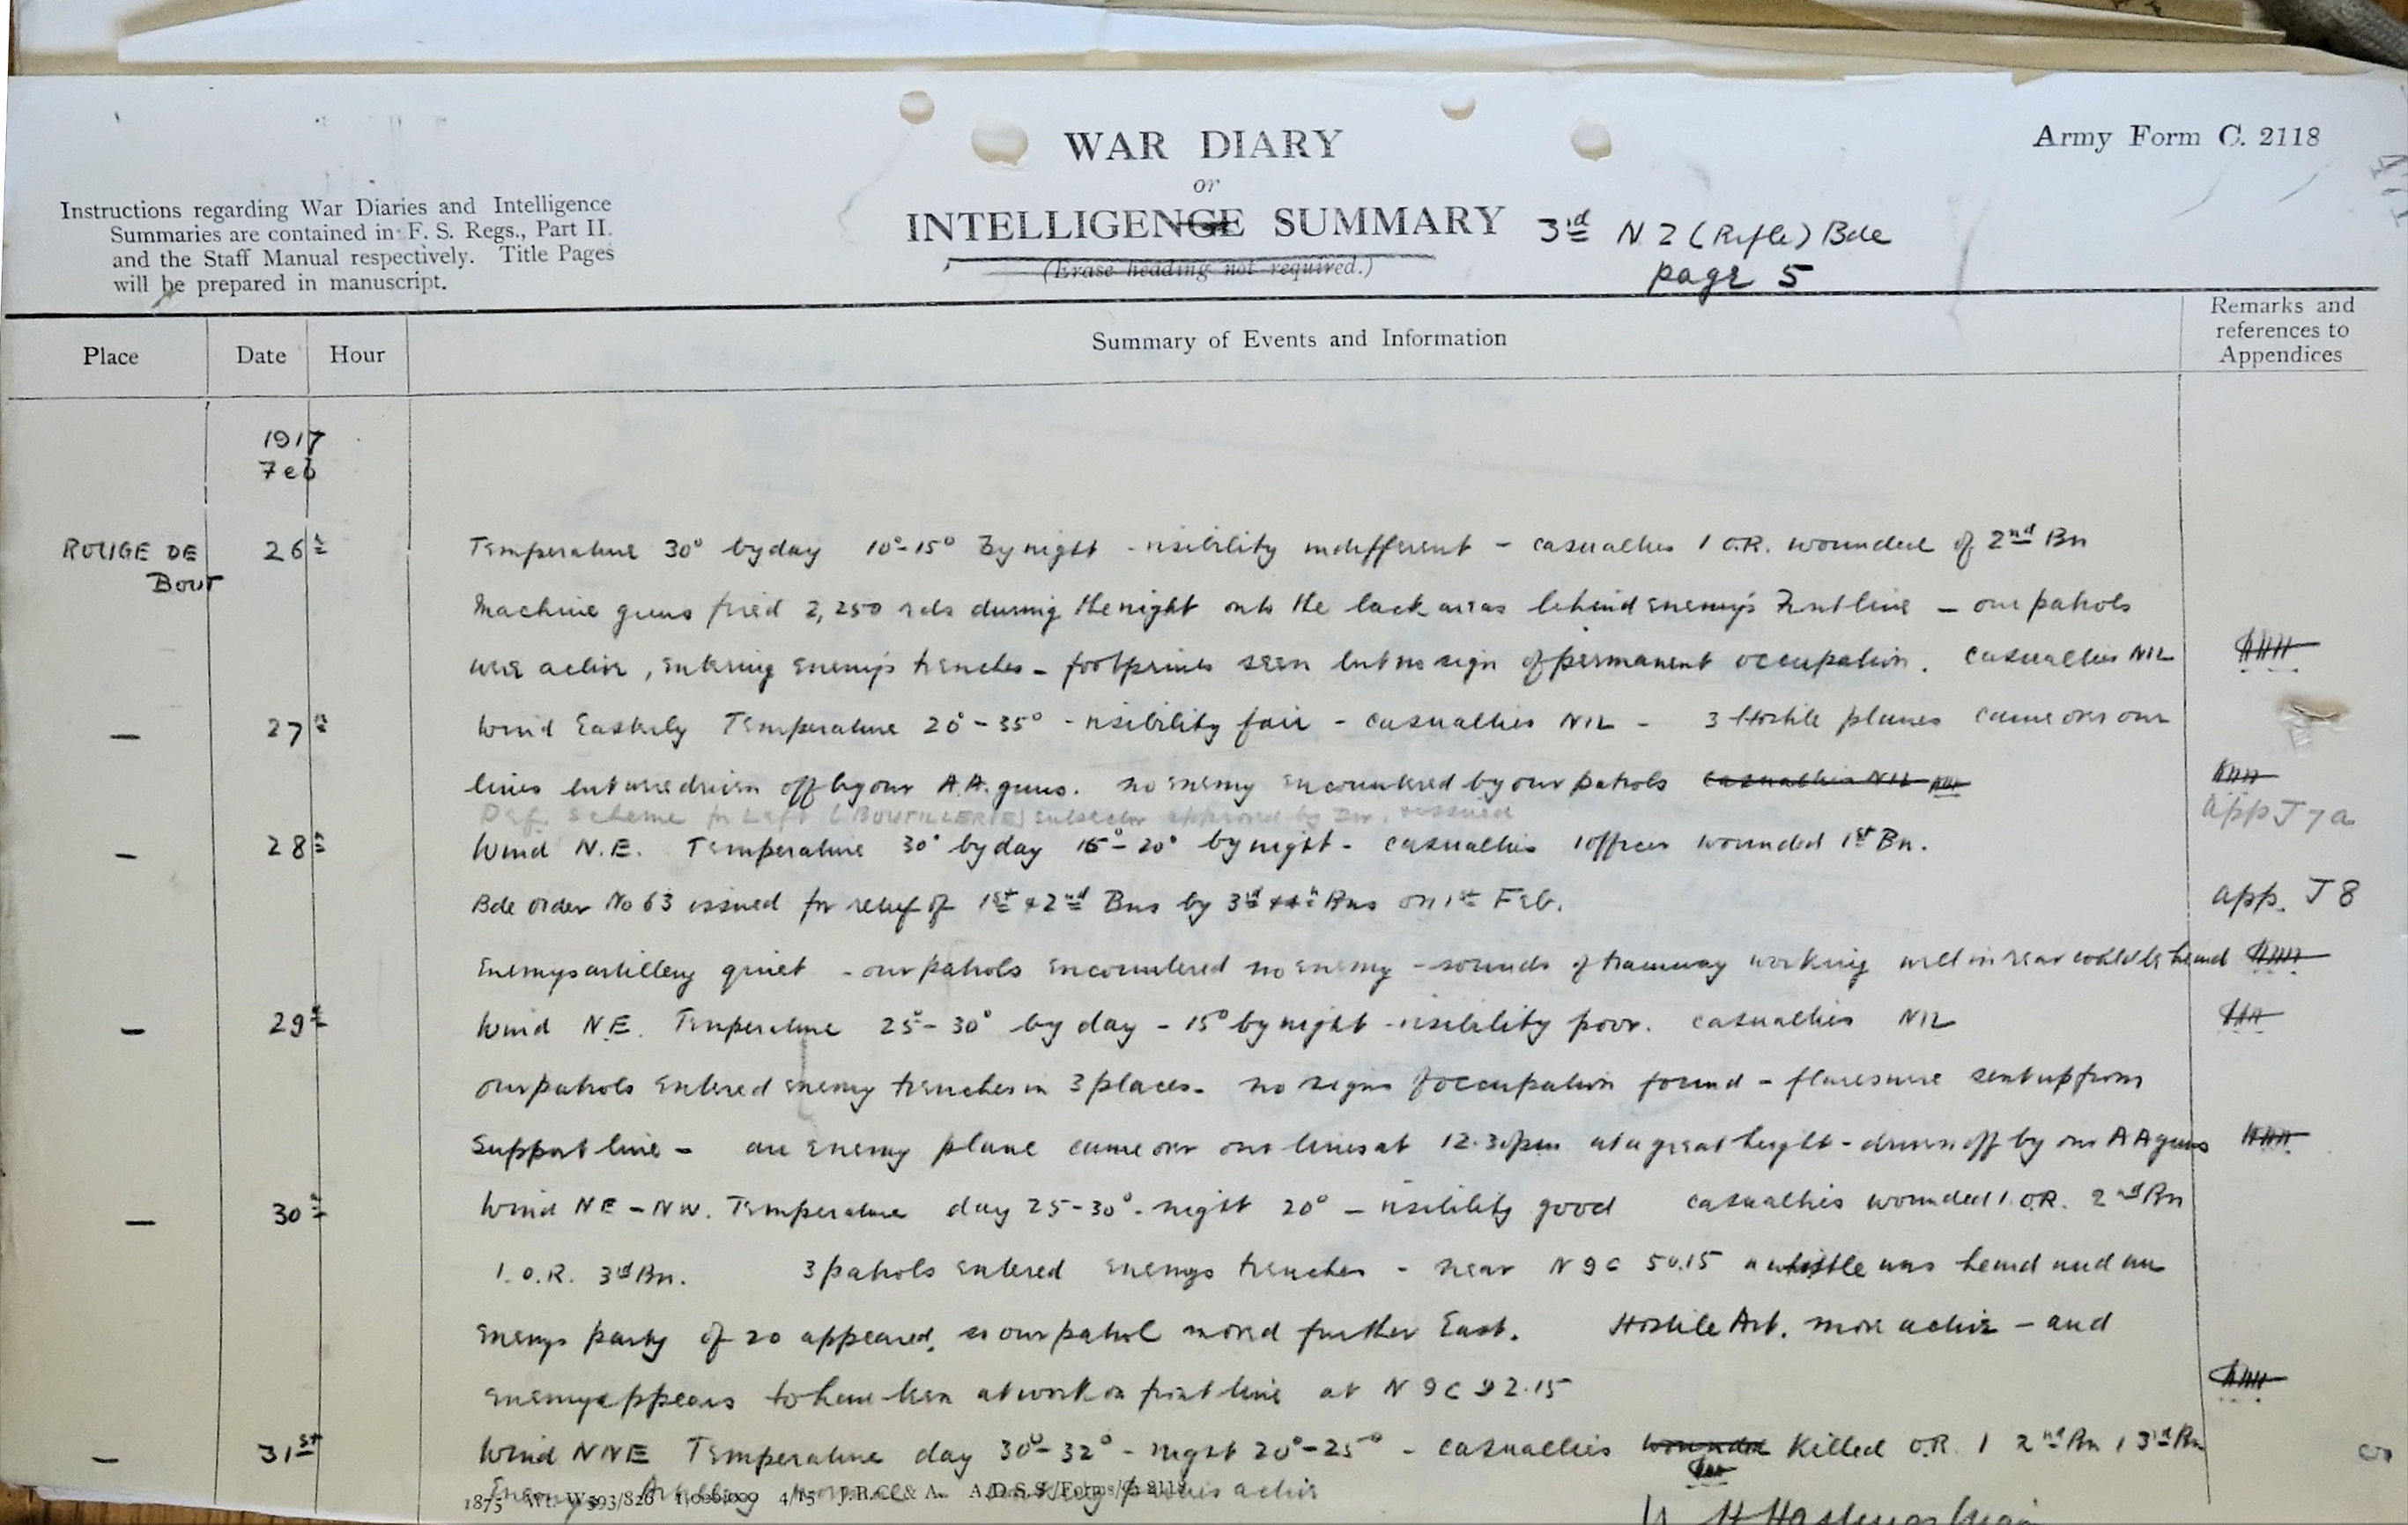 WAR DIARY
or
INTELLIGENCE SUMMARY
(Erase heading not required.)
Army Form C. 2118
Instructions regarding War Diaries and Intelligence
Summaries are contained in F. S. Regs., Part II.
and the Staff Manual respectively. Title Pages
will be prepared in manuscript.
3rd N Z (Rifle) Bde
page 5
Place Date Hour Summary of Events and Information Remarks and references to Appendices
1917
Feb
ROUGE DE Bout 26th Temperature 30° by day 10°-15° By night - visibility indifferent - casualties 1 O.R. wounded of 2nd Bn
Machine guns fired 2,250 rds during the night onto the back areas behind enemy's Front line - our patrols
were active, entering enemy's trenches - footprints seen but no sign of permanent occupation. Casualties NIL
— 27th Wind Easterly Temperature 20° - 35° - visibility fair - casualties NIL - 3 Hostile planes came over our
lines but were driven off by our A.A. guns. no enemy encountered by our patrols casualties NIL
Def. Scheme for Left (BOUTILLERIE) subsector approved by Div. issued app J 7a
— 28th Wind N.E. Temperature 30° by day 15°-20° by night - casualties 1 officer wounded 1st Bn.
Bde order No 63 issued for relief of 1st & 2nd Bns by 3rd & 4th Bns on 1st Feb. app. J 8
Enemys artillery quiet - our patrols encountered no enemy - sounds of tramway working well in rear could be heard
— 29th Wind N.E. Temperature 25°- 30° by day - 15° by night - visibility poor. casualties NIL
our patrols entered enemy trenches in 3 places - no signs of occupation found - flares were sent up from
Support line - one enemy plane came over our lines at 12.30pm at a great height - driven off by our A A guns
— 30th Wind NE - NW. Temperature day 25-30° - night 20° - visibility good casualties wounded 1. O.R. 2nd Bn
1. O.R. 3rd Bn. 3 patrols entered enemys trenches - near N 9 c 50.15 a whistle was heard and an
enemys party of 20 appeared, so our patrol moved further East. Hostile Art. more active - and
enemy appears to have been at work on front line at N 9 c 92.15
— 31st Wind NNE Temperature day 30°- 32° - night 20°-25° - casualties wounded Killed O.R. 1 2nd Bn 1 3rd Bn
Enemys Artillery active
1875 Wt. W593/826 1,000,000 4/15 J.B.C. & A. A.D.S.S./Forms/C. 2118.